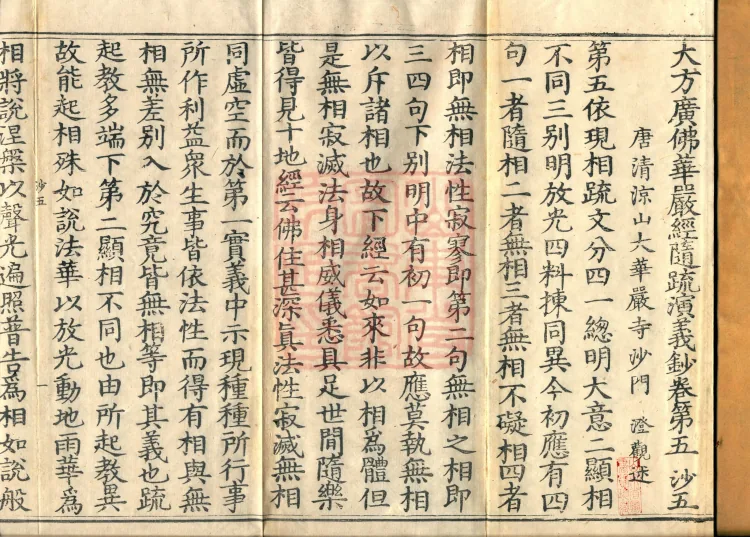 大方廣佛華嚴經隨疏演義鈔卷第五 沙五
唐清涼山大華嚴寺沙門 澄觀述
第五依現相疏文分四一總明大意二顯相
不同三別明放光四料揀同異今初應有四
句一者隨相二者無相三者無相不礙相四者
相即無相法性寂寥即第二句無相之相即
三四句下別明中有初一句故應莫執無相
以斥諸相也故下經云如來非以相為體但
是無相寂滅法身相威儀悉具足世間隨樂
皆得見十地經云佛住甚深真法性寂滅無相
同虛空而於第一實義中示現種種所行事
所作利益衆生事皆依法性而得有相與無
相無差別入於究竟皆無相等即其義也疏
起教多端下第二顯相不同也由所起教異
故能起相殊如說法華以放光動地雨華為
沙五
一
相將說涅槃以聲光遍照普告為相如說般